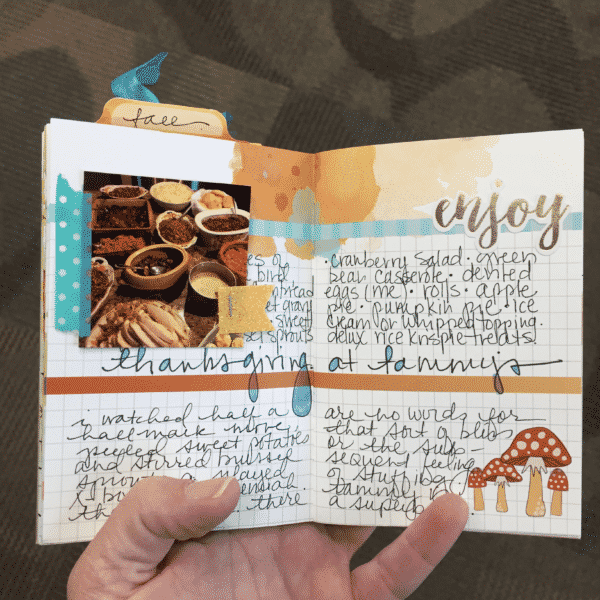 fall
enjoy
es of
bird
nbread
et gravy
sweet
sel sprouts
· cranberry salad · green
bean casserole · deviled
eggs (me) · rolls · apple
pie · pumpkin pie · ice
cream or whipped topping ·
delux rice krispie treats!
thanksgiving at tammy's
i watched half a
hallmark movie,
peeled sweet potatoes
and stirred brussel
sprouts played
there
are no words for
that sort of bliss
or the sub-
sequent feeling
of stuffing
tammy
a superb